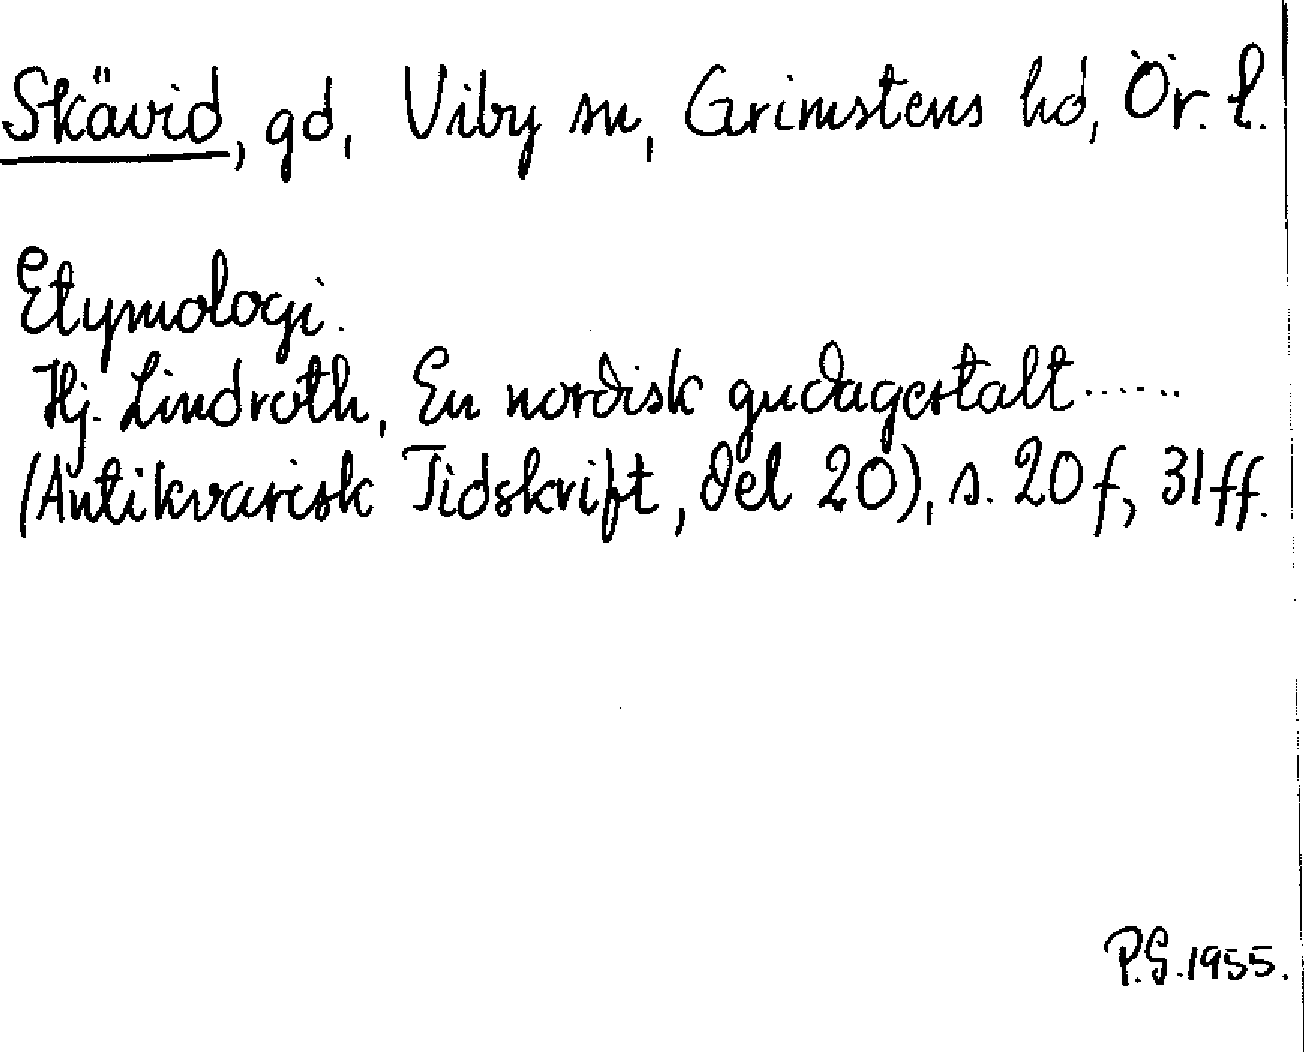 Skävid, gd, Viby sn, Grimstens hd, Ör. l.
Etymologi.
Hj. Lindroth, En nordisk gudagestalt......
(Antikvarisk Tidskrift, del 20), s. 20 f, 31 ff.
P.G. 1955.